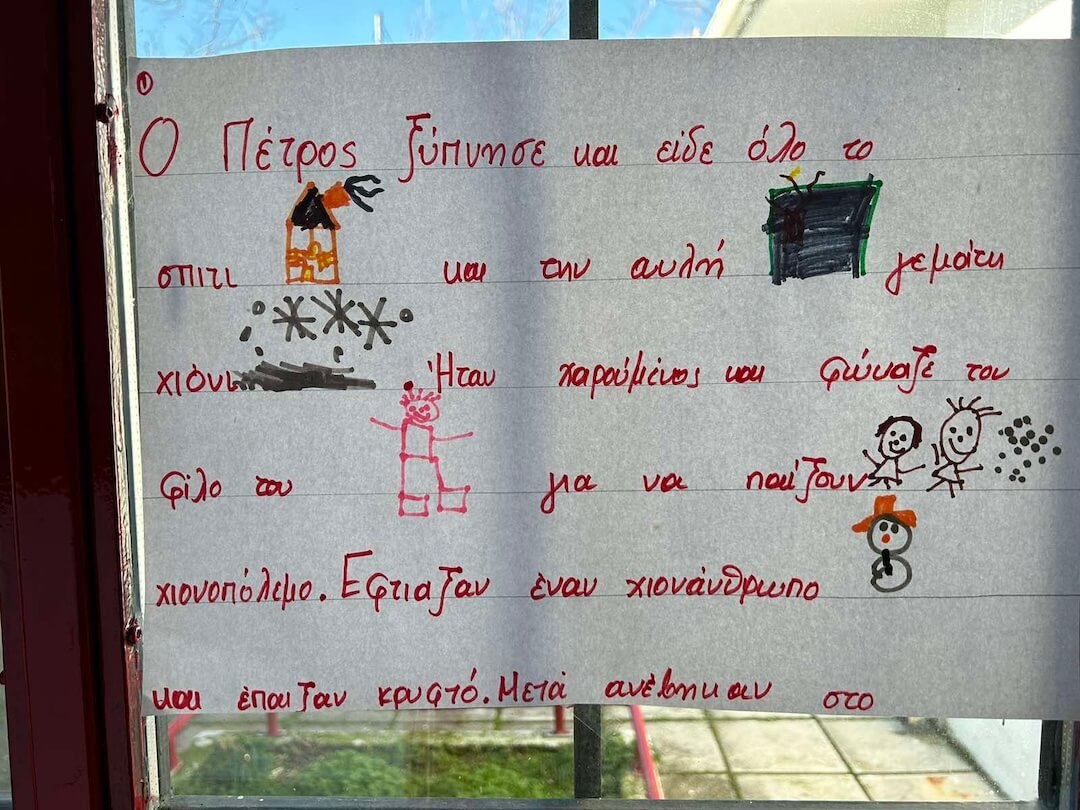 1
Ο Πέτρος ξύπνησε και είδε όλο το
σπιτι και την αυλή γεμάτη
χιόνι. Ήταν χαρούμενος και φώναξε τον
φίλο του για να παίζουν
χιονοπόλεμο. Εφτιαξαν έναν χιονάνθρωπο
και έπαιξαν κρυφτό. Μετά ανέβηκαν στο